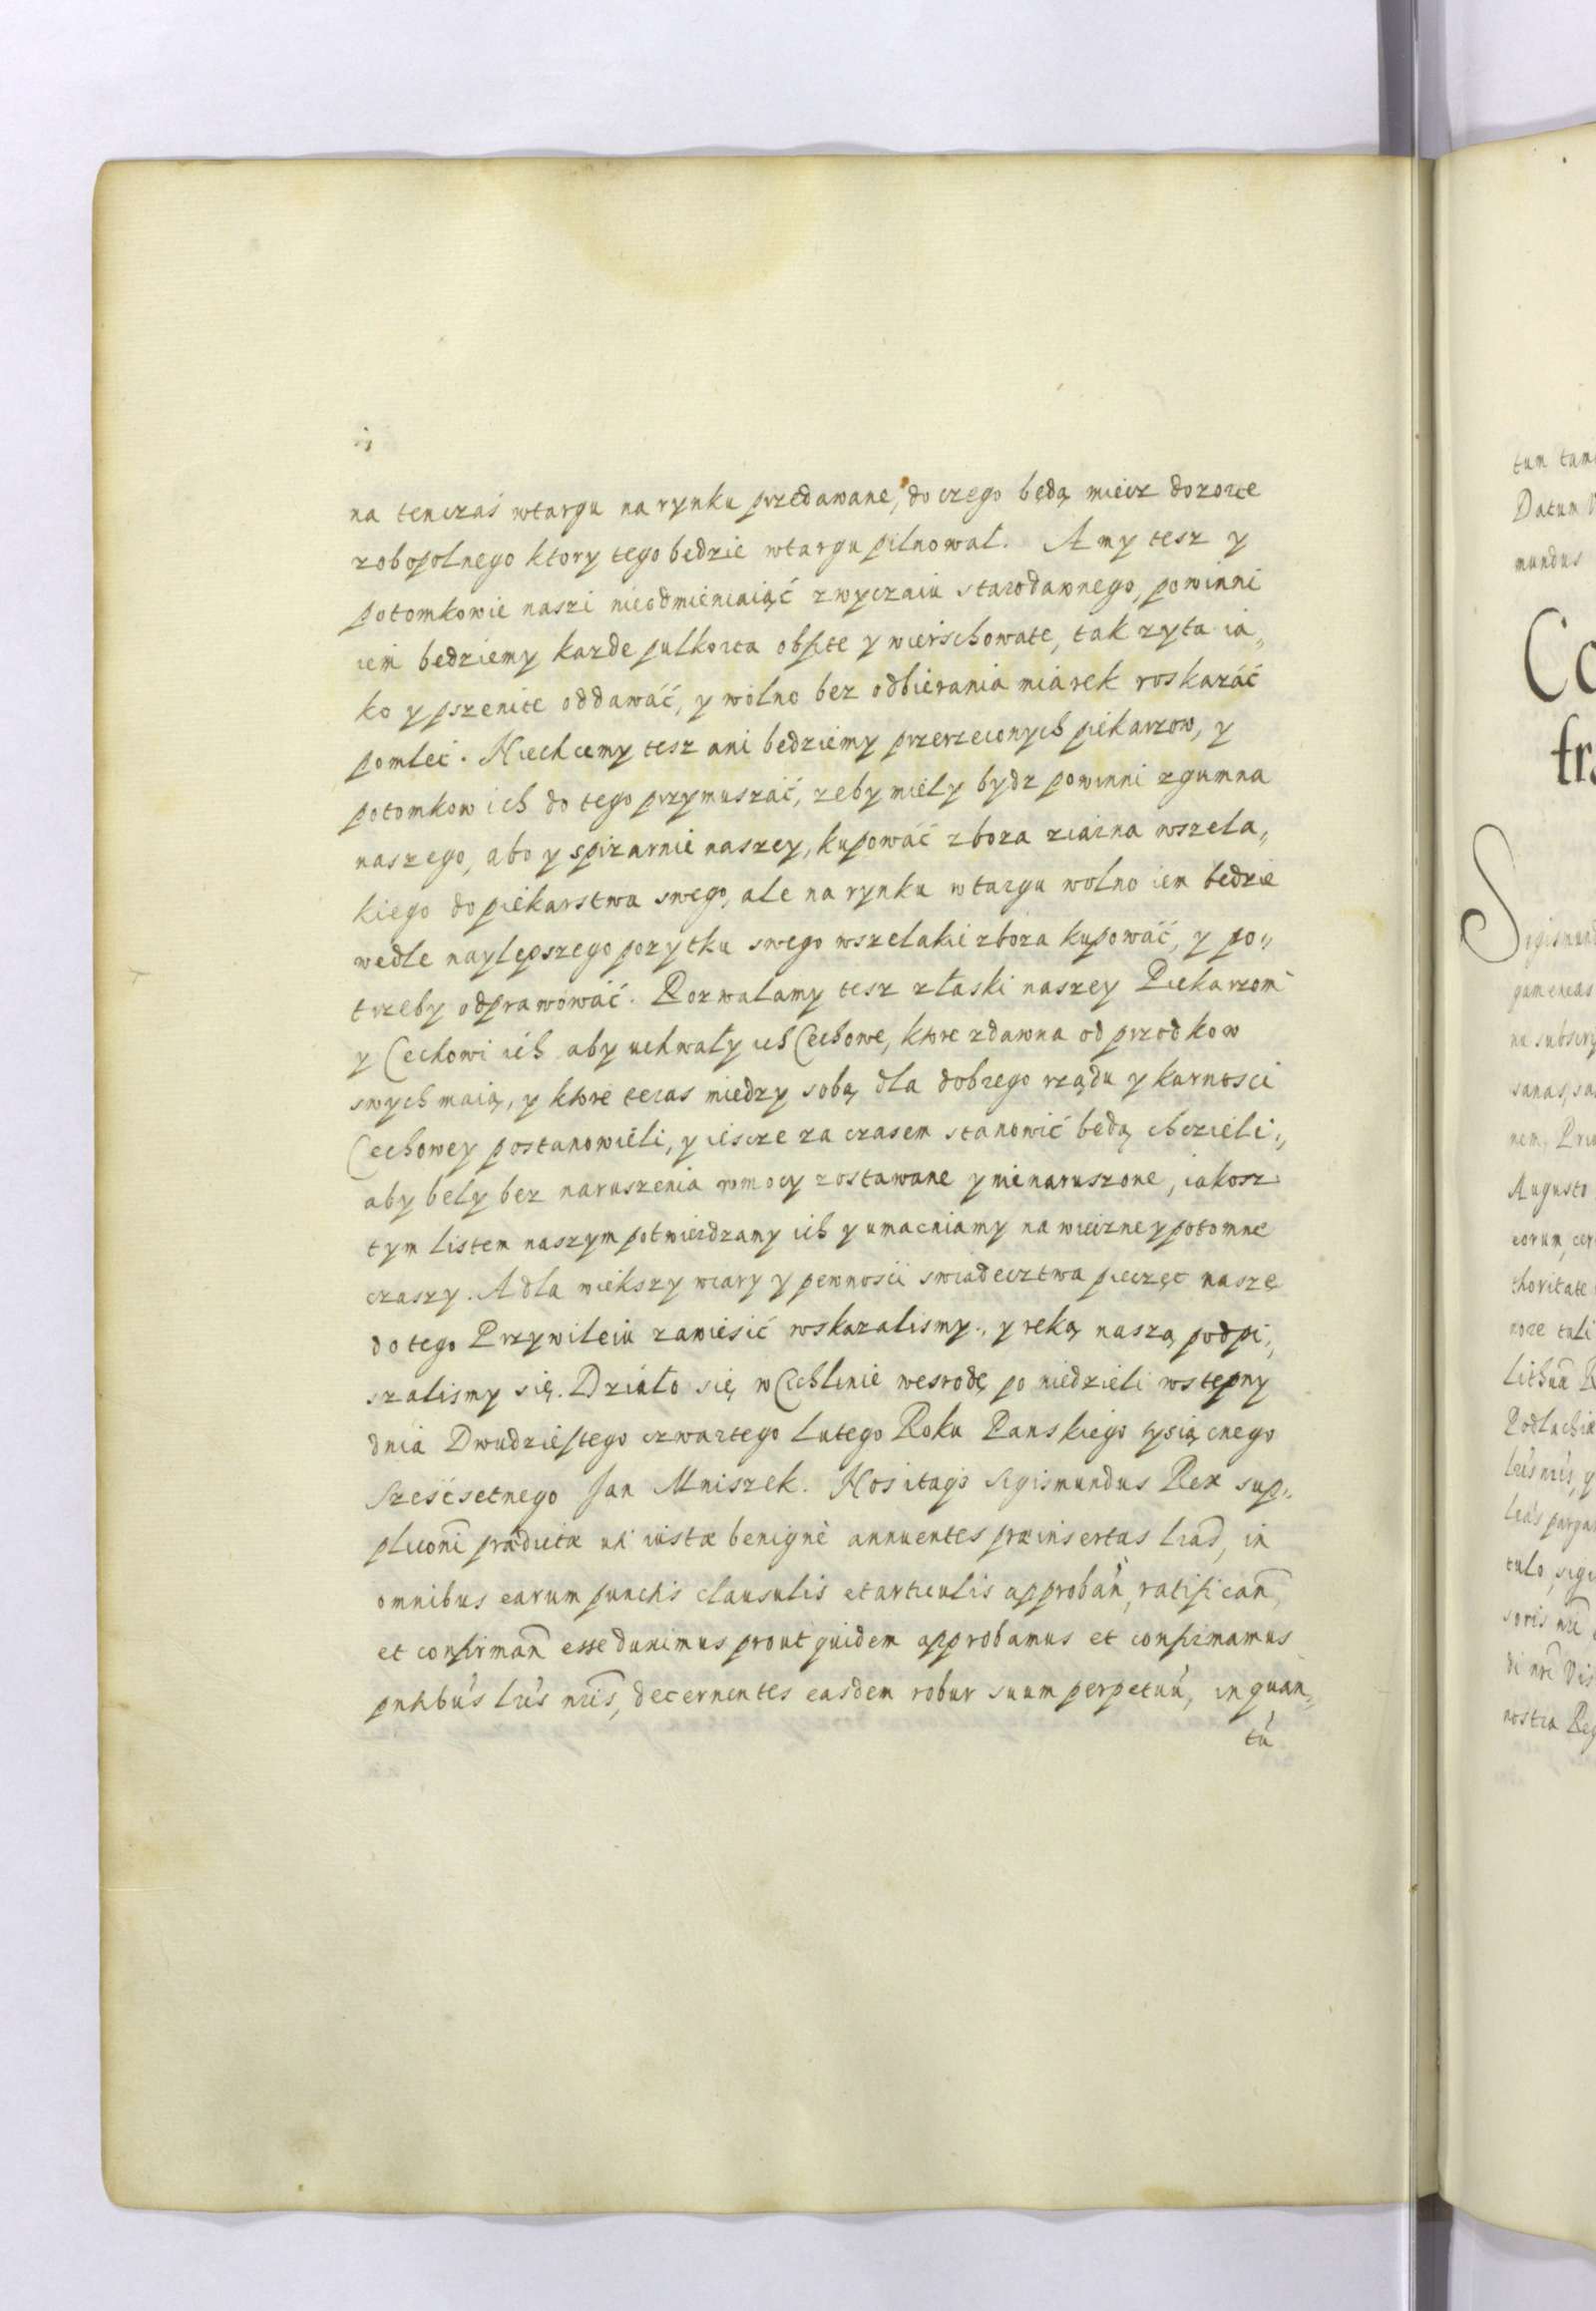 na tenczas wtargu na rynku przedawane, do czego będą miecz dozorce
zobopolnego ktory tego bedzie wtargu pilnował. A my tesz y
potomkowie naszi nieodmieniaiąć zwyczaiu starodawnego, powinni
iem bedziemy kazde pulkorca obfite y wierschowate, tak zyta ia„
ko y pszenice oddawáć, y wolno bez odbierania miarek roskazáć
pomleć. Niechcemy tesz ani bedziemy przerzeconych piekarzow, y
potomkow ich do tego przymuszáć, zeby miely bydz powinni zgumna
naszego, abo y spizarnie naszey, kupowáć zboza ziarna wszela„
kiego do piekarstwa swego, ale na rynku wtargu wolno iem bedzie
wedle naylepszego pozytku swego wszelakie zboza kupowáć, y po„
trzeby odprawowáć. Pozwalamy tesz złaski naszey Piekarzom
y Cechowi ich aby uchwały ich Cechowe, ktore zdawna od przodkow
swych maią, y ktore teras miedzy sobą dla dobrego rządu y karnosci
Cechowey postanowieli, y iescze za czasem stanowić będą chczieli„
aby bely bez naruszenia wmocy zostawane y nienaruszone, iakosz
tym listem naszym potwierdzamy ich y umacniamy na wieczne y potomne
czaszy. A dla wiekszy wiary y pewnosci swiadecztwa pieczęc naszę
do tego Przywileiu zawiesić wskazalismy, y reką naszą podpi„
szalismy się. Działo się w Cichlinie wesrodę po niedzieli wstepny
dnia Dwudziestego czwartego Lutego Roku Panskiego tysiącnego
Sześcsetnego Jan Mniszek. Nos itaq́s Sigismundus Rex sup„
plicoñi prædictæ uti iustæ benignè annuentes præinsertas lrás, in
omnibus earum punctis clausulis et articulis approbañ, ratificañ
et confirmañ esse duximus prout quidem approbamus et confirmamus
pntibus lris nris, decernentes easdem robur suum perpetuũ, in quan„
tũ
tum tam
Datum
mundus
Co
tra
Sigismund
Augusto
thoritate
lithuañ
Podlachiæ
nostra Reg